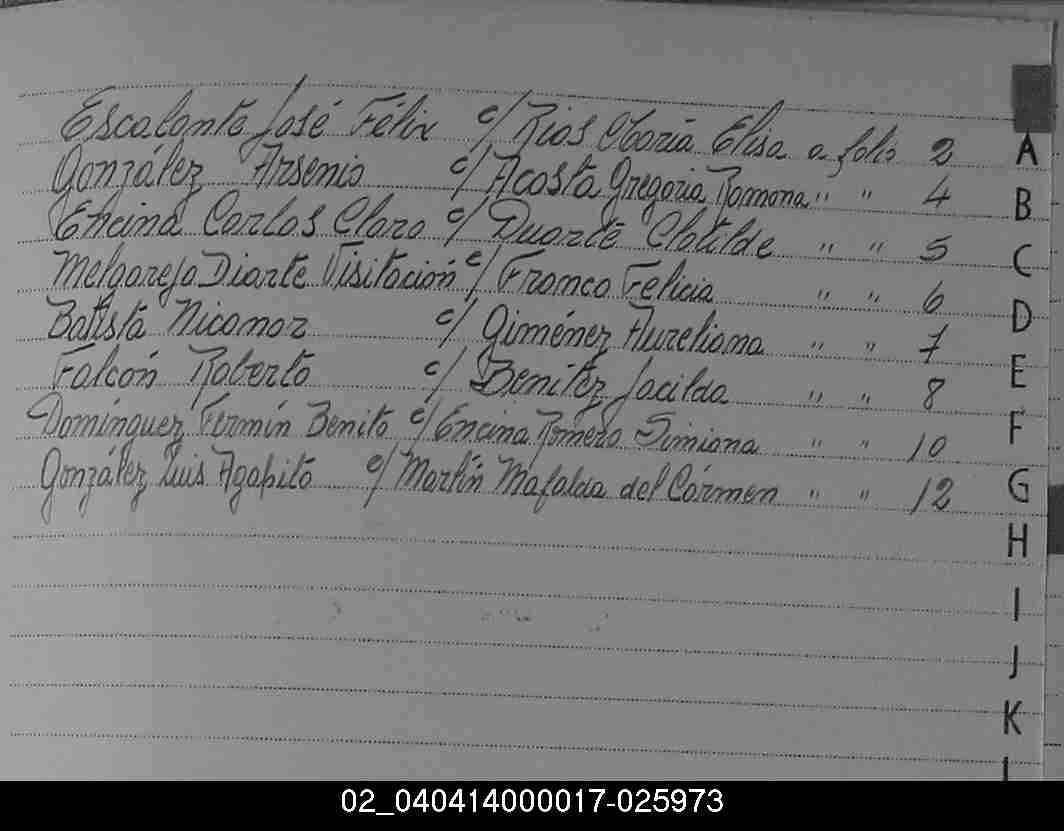 Escalante José Félix c/ Rios María Elisa a folio 2
González Arsenio c/ Acosta Gregoria Ramona " " 4
Encina Carlos Claro c/ Duarte Clotilde " " 5
Melgarejo Diarte Visitación c/ Franco Felicia " " 6
Batista Nicanor c/ Giménez Aureliana " " 7
Falcón Roberto c/ Benítez Jacilda " " 8
Domínguez Fermín Benito c/ Encina Romero Simiana " " 10
González Luis Agapito c/ Martín Mafalda del Cármen " " 12
A
B
C
D
E
F
G
H
I
J
K
L
02_040414000017-025973